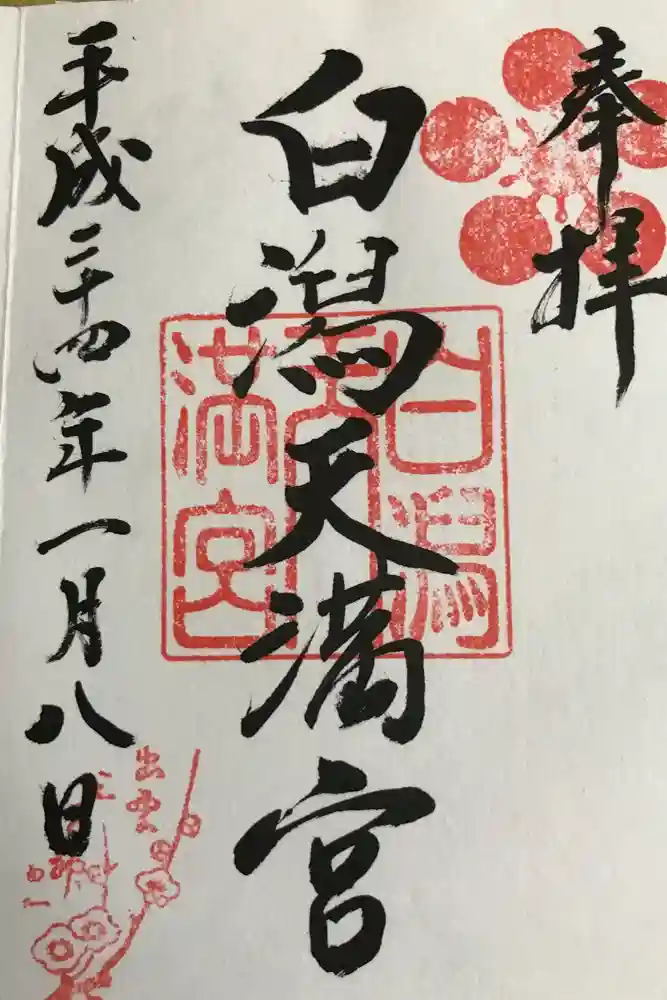 奉拝
白潟天満宮
平成二十四年一月八日
白潟
天
満宮
出雲